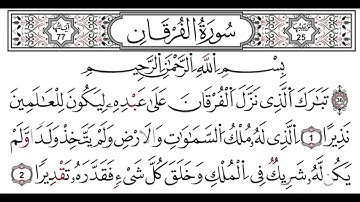 آيَاتُهَا 77 سُورَةُ الْفُرْقَانِ 25
بِسْمِ اللَّهِ الرَّحْمَٰنِ الرَّحِيمِ
تَبَارَكَ الَّذِي نَزَّلَ الْفُرْقَانَ عَلَىٰ عَبْدِهِ لِيَكُونَ لِلْعَالَمِينَ
نَذِيرًا 1 الَّذِي لَهُ مُلْكُ السَّمَٰوَٰتِ وَالْأَرْضِ وَلَمْ يَتَّخِذْ وَلَدًا وَلَمْ
يَكُن لَّهُ شَرِيكٌ فِي الْمُلْكِ وَخَلَقَ كُلَّ شَيْءٍ فَقَدَّرَهُ تَقْدِيرًا 2